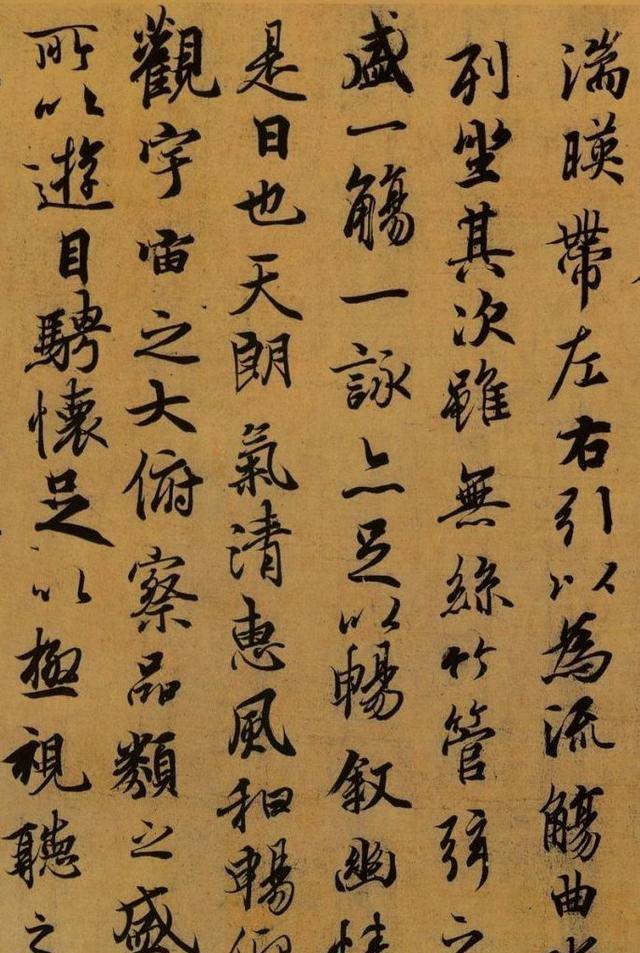 湍暎帶左右引以為流觴曲水
列坐其次雖無絲竹管弦之
盛一觴一詠亦足以暢叙幽情
是日也天朗氣清惠風和暢仰
觀宇宙之大俯察品類之盛
所以遊目騁懷足以極視聽之